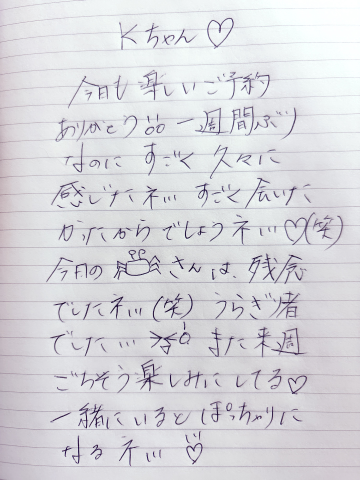 Kちゃん♡
今日も楽しいご予約
ありがとう!! 一週間ぶり
なのに すごく 久々に
感じたネ… すごく 会いた
かったから でしょうネ…♡(笑)
今日の さんは、残念
でしたネ…(笑) うらぎり者
でした… また来週
ごちそう楽しみにしてる♡
一緒にいると ぽっちゃりに
なるネ…♡